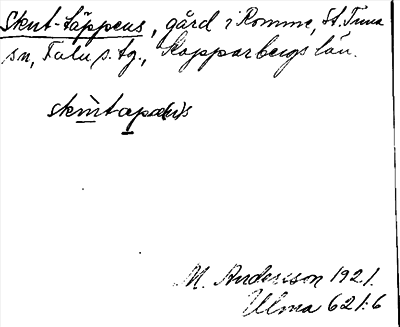 Skut-täppens, gård i Romme, St. Tuna
sn, Falu s. tg., Kopparbergs län.
skùtapa(n)s
M. Andersson 1921.
Ulma 621:6